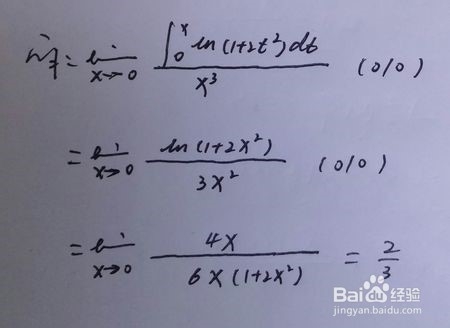 原式 = lim x→0 ∫₀ˣ ln(1+2t²)dt / x³ (0/0)
= lim x→0 ln(1+2x²) / 3x² (0/0)
= lim x→0 4x / 6x(1+2x²) = 2/3
Baidu经验
jingyan.baidu.com